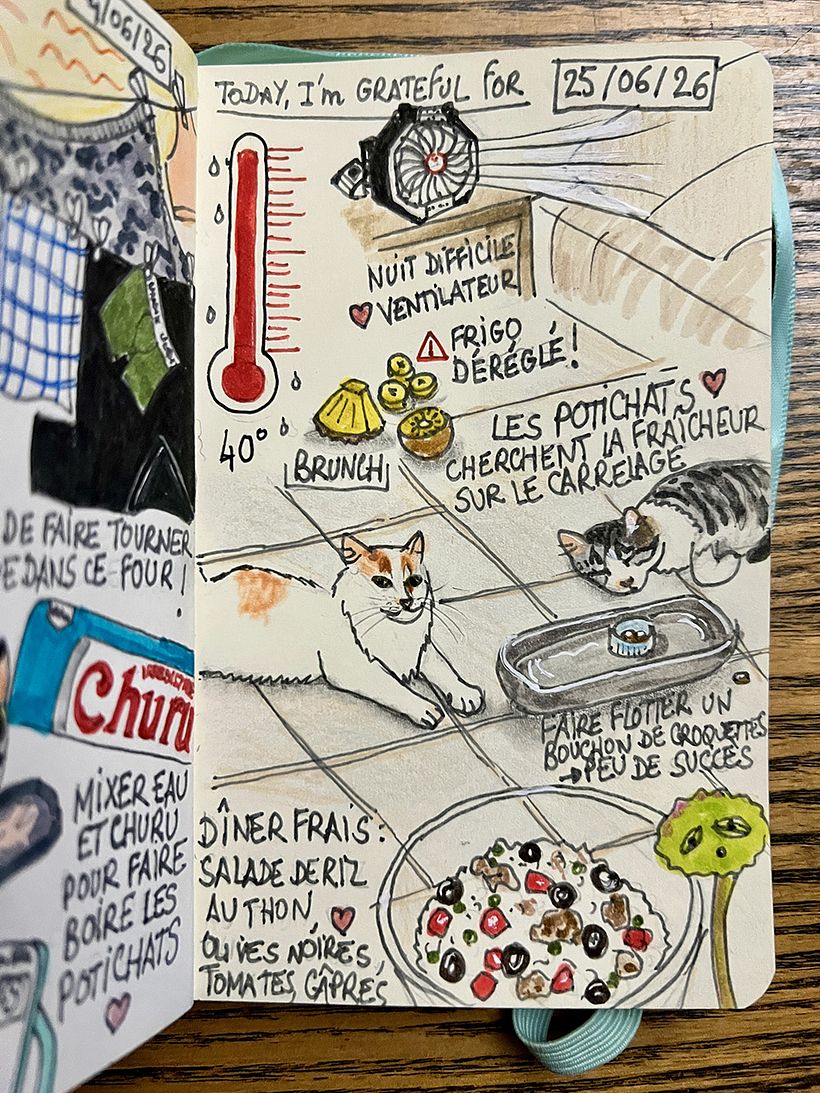 4/06/26
DE FAIRE TOURNER
E DANS CE FOUR !
Churu
MIXER EAU
ET CHURU
POUR FAIRE
BOIRE LES
POTICHATS
TODAY, I'm GRATEFUL FOR
25/06/26
NUIT DIFFICILE
VENTILATEUR
FRIGO
DÉRÉGLÉ !
40°
BRUNCH
LES POTICHATS
CHERCHENT LA FRAÎCHEUR
SUR LE CARRELAGE
FAIRE FLOTTER UN
BOUCHON DE CROQUETTES
→ PEU DE SUCCÈS
DÎNER FRAIS :
SALADE DE RIZ
AU THON,
OLIVES NOIRES,
TOMATES, CÂPRES